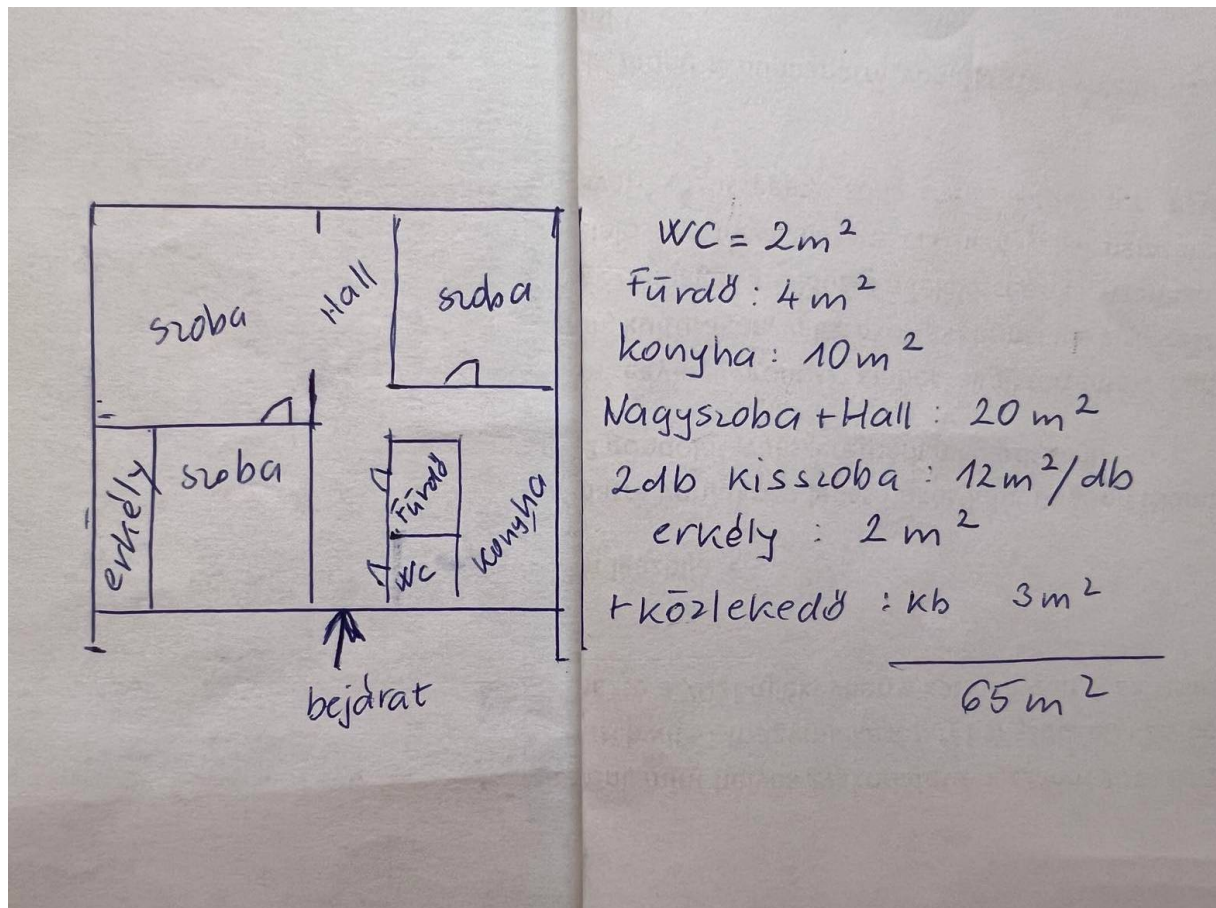 szoba
Hall
szoba
erkély
szoba
Fürdő
WC
konyha
bejárat
WC = 2m²
Fürdő : 4m²
konyha : 10m²
Nagyszoba + Hall : 20 m²
2db kisszoba : 12m²/db
erkély : 2 m²
+ közlekedő : kb 3m²
65 m²